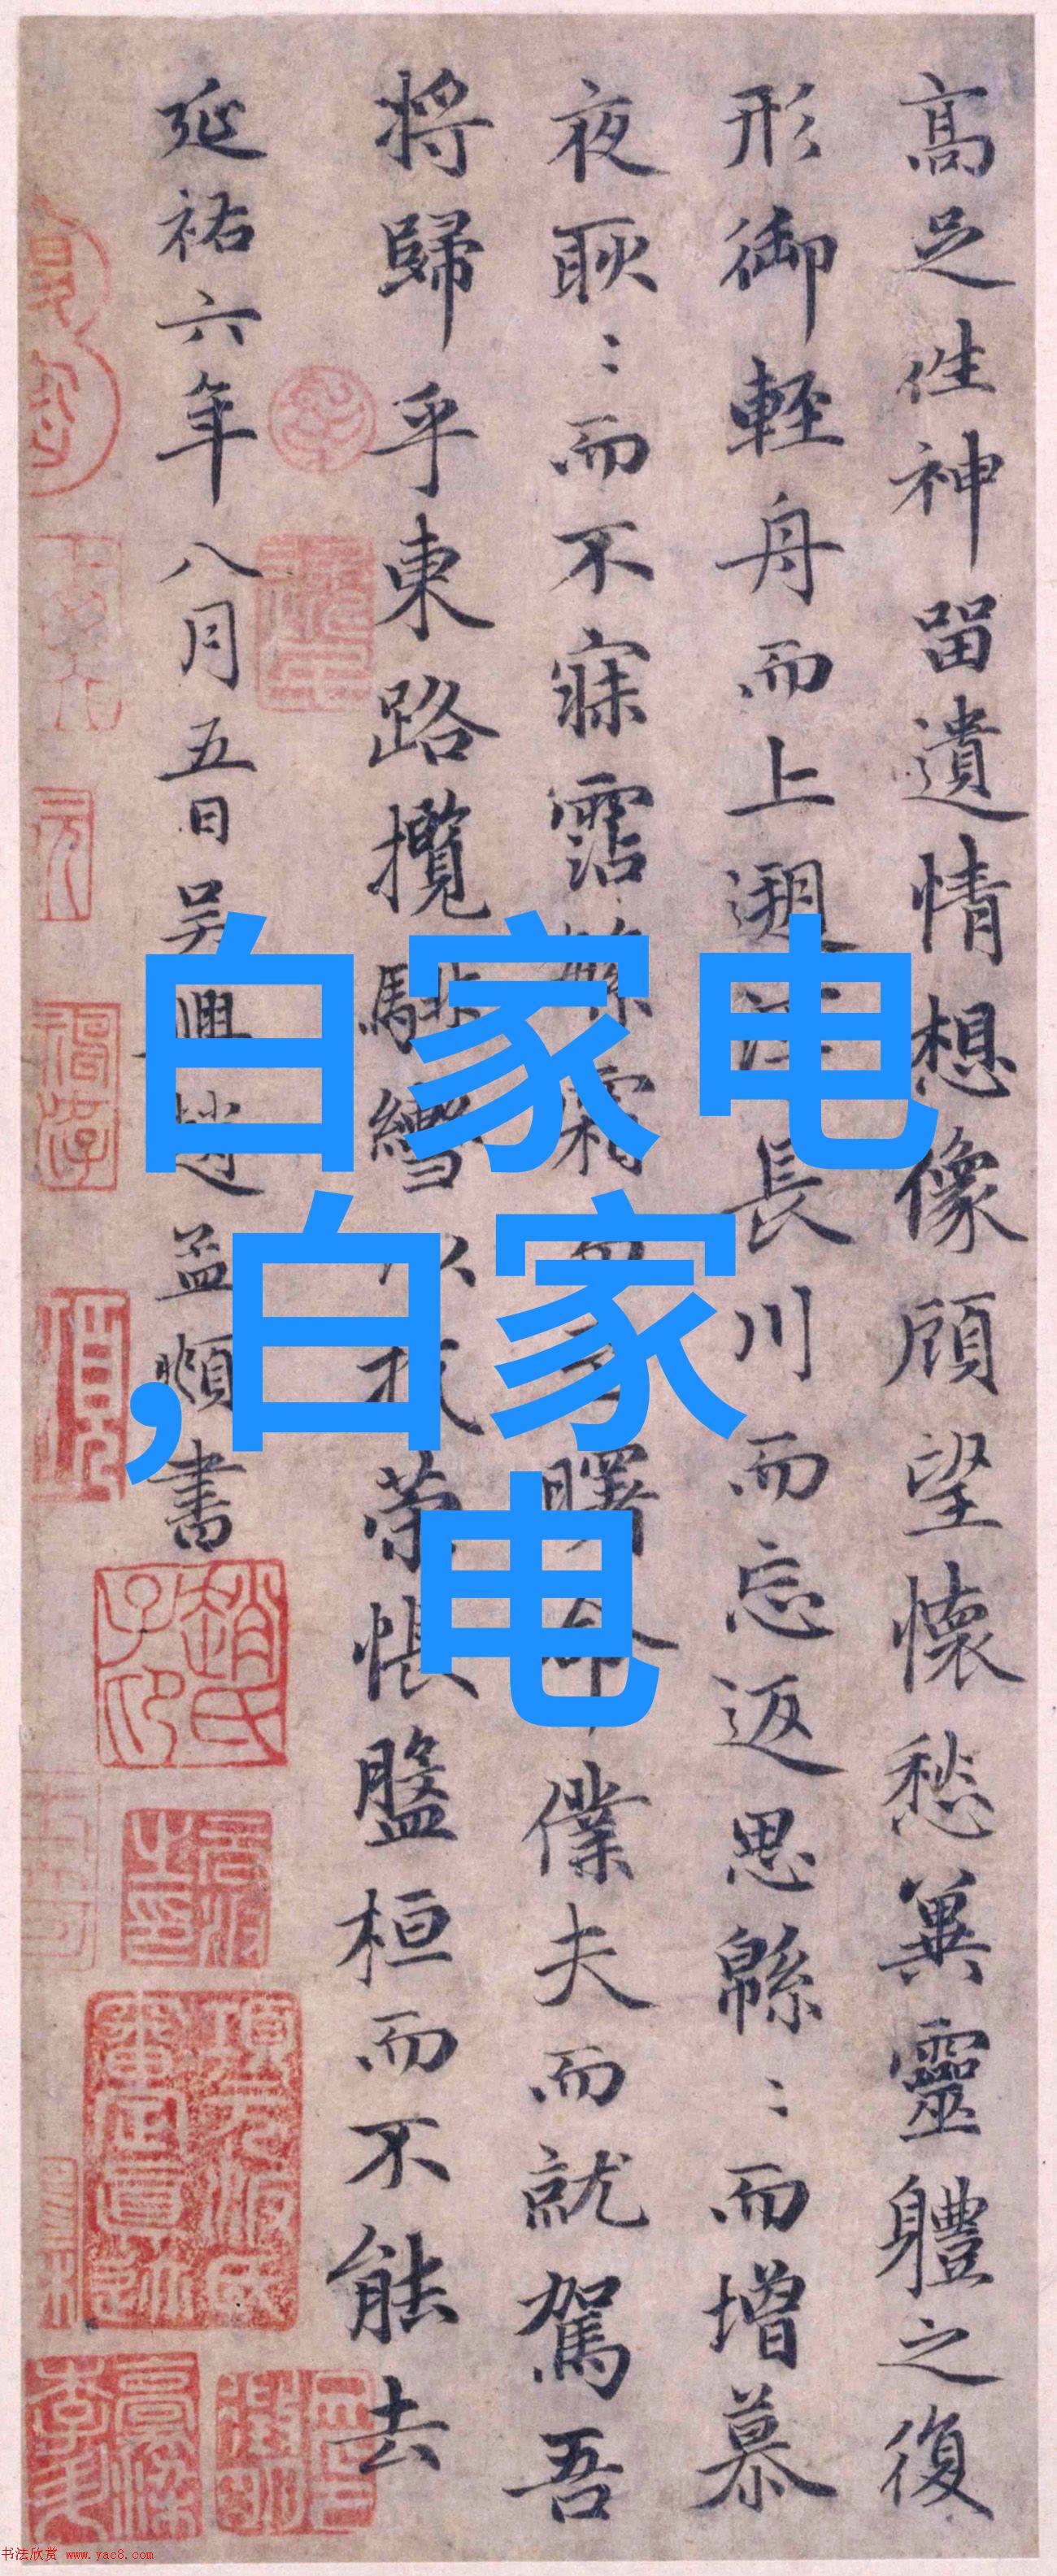 高足往神留遺情想像顧望懷愁冀靈體之復
形御輕舟而上遡長川而忘返思緜：而增慕
夜耿：而不寐霑繁霜曙命僕夫而就駕吾
將歸乎東路攬騑轡以抗策悵盤桓而不能去
延祐六年八月五日吳興趙孟頫書
白家电
,白家
电
趙氏子印
书法欣赏 www.yac8.com